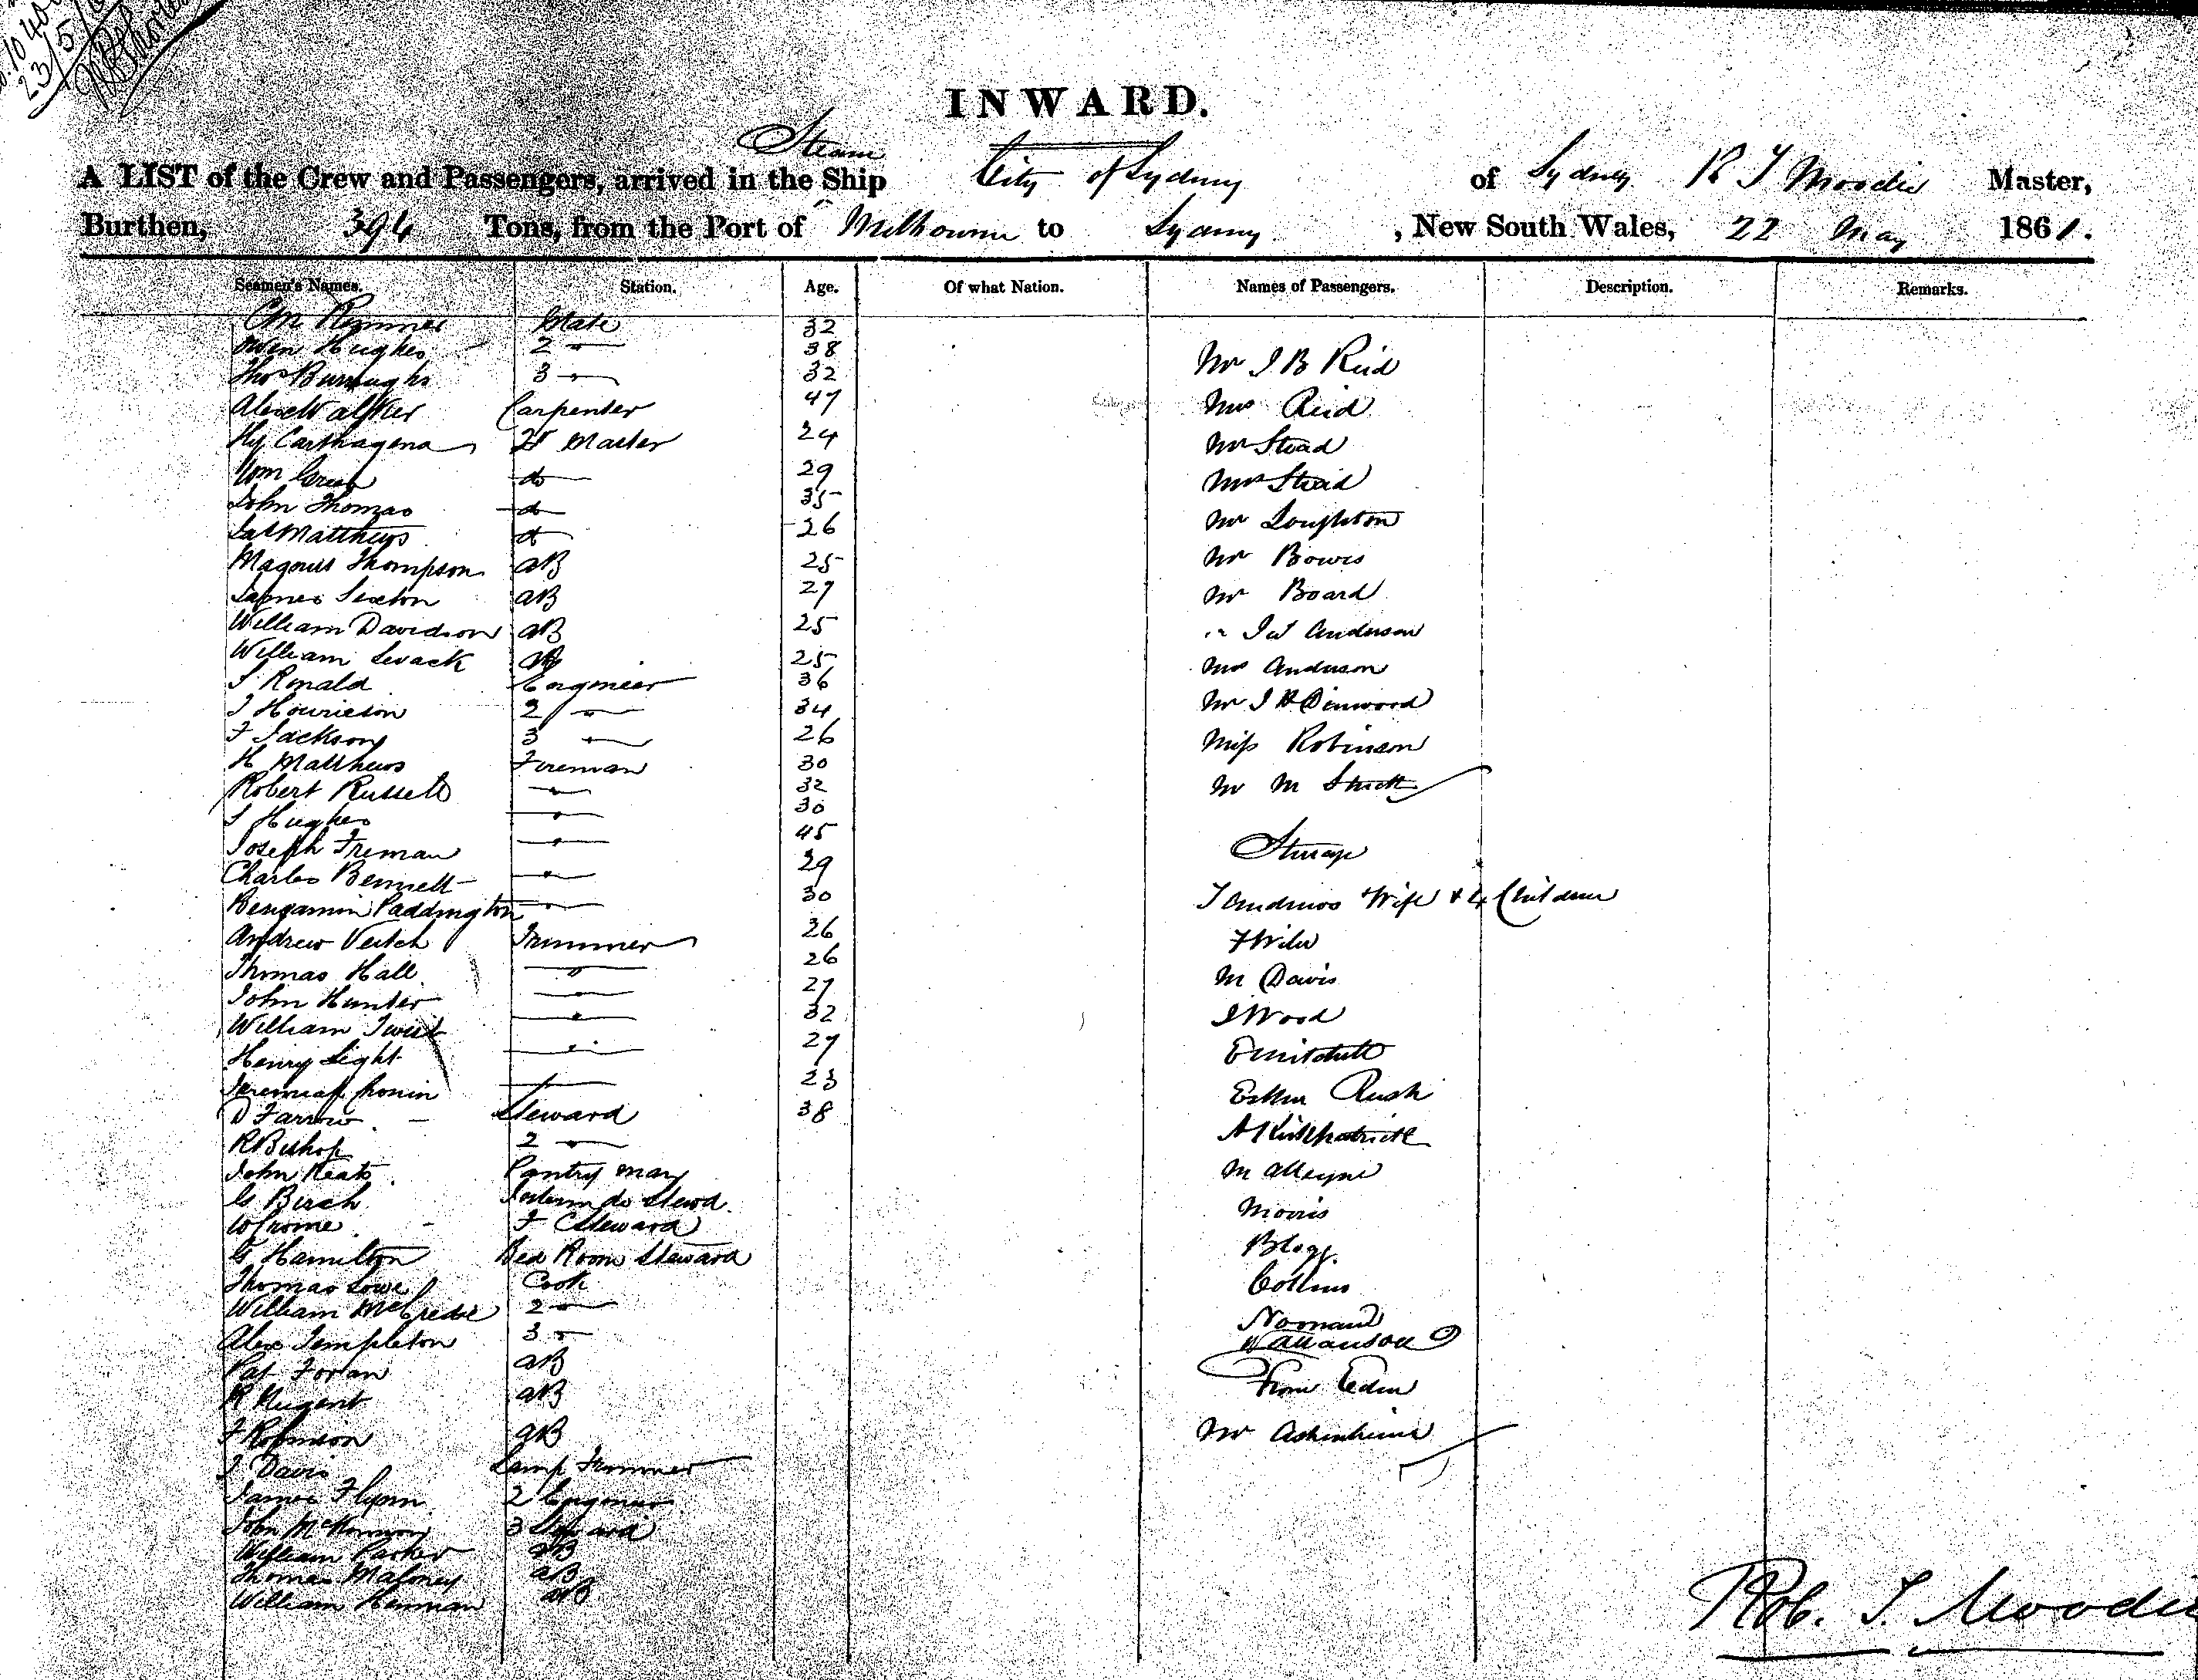 23/5/
INWARD.
Steam
A LIST of the Crew and Passengers, arrived in the Ship City of Sydney of Sydney R T Moodie Master,
Burthen, 394 Tons, from the Port of Melbourne to Sydney, New South Wales, 22 May 1861.
Seamen's Names. Station. Age. Of what Nation. Names of Passengers. Description. Remarks.
Mate 32
Owen Hughes 2 " 38 Mr J B Reid
Thos Burroughs 3 " 32
Alex Walker Carpenter 47 Mrs Reid
Hy Carthagena Qr Master 24 Mr Stead
Wm Green do 29 Mrs Stead
John Thomas do 35
Jas Matthews do 26 Mr Loughton
Magnus Thompson AB 25 Mr Bowes
James Sexton AB 27 Mr Board
William Davidson AB 25 " Jas Anderson
William Levack AB 25 Mrs Anderson
J Ronald Engineer 36
J Hourieson 2 " 34 Mr J R Dinwood
F Jackson 3 " 26 Miss Robinson
H Matthews Fireman 30
Robert Russell " 32 Mr M
J Hughes " 30
Joseph Freman " 45 Steerage
Charles Bennett " 29
Benjamin Paddington " 30 T Andrews Wife & 4 Children
Andrew Veitch Trimmer 26
Thomas Hall " 26 M Davis
John Hunter " 27
William Twist " 32 J Wood
Henry Light " 27 E Mitchell
Jeremiah Cronin " 23 Esther Rush
D Farrow Steward 38
R Bishop 2 " A Kirkpatrick
John Keats Pantry man M Alleyne
G Birch Interm do Stewd
W Crome F C Steward Morris
G Hamilton Bed Room Steward Blogg
Thomas Lowe Cook Collins
William McCredie 2 " Normand
Alex Templeton 3 "
Pat Foran AB From Eden
R Nugent AB
F Robinson AB Mr Ashenheim
J Davis Lamp Trimmer
James Flynn 2 Engineer
John McKinnon 3 Steward
William Parker AB
Thomas Maloney AB
William Henman AB
Rob. T. Moodie